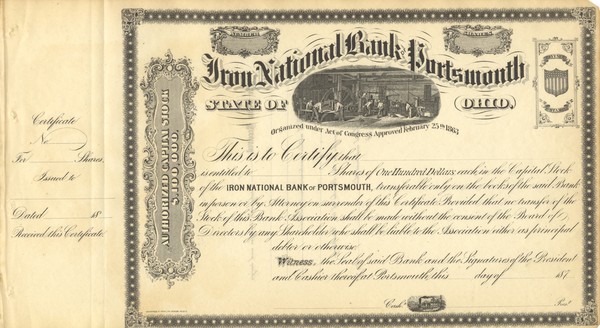 Certificate
No
For Shares.
Issued to
Dated 18
Received this Certificate.
NUMBER
SHARES
Iron National Bank Portsmouth
STATE OF OHIO,
Organized under Act of Congress Approved February 25th 1863
AUTHORIZED CAPITAL STOCK
$100,000.
This is to Certify that
is entitled to Shares of One Hundred Dollars each in the Capital Stock
of the IRON NATIONAL BANK OF PORTSMOUTH, transferable only on the books of the said Bank
in person or by Attorney on surrender of this Certificate Provided that no transfer of the
Stock of this Bank Association shall be made without the consent of the Board of
Directors by any Shareholder who shall be liable to the Association either as principal
debtor or otherwise.
Witness, the Seal of said Bank and the Signatures of the President
and Cashier thereof at Portsmouth, this day of 187
Cash. Pres.